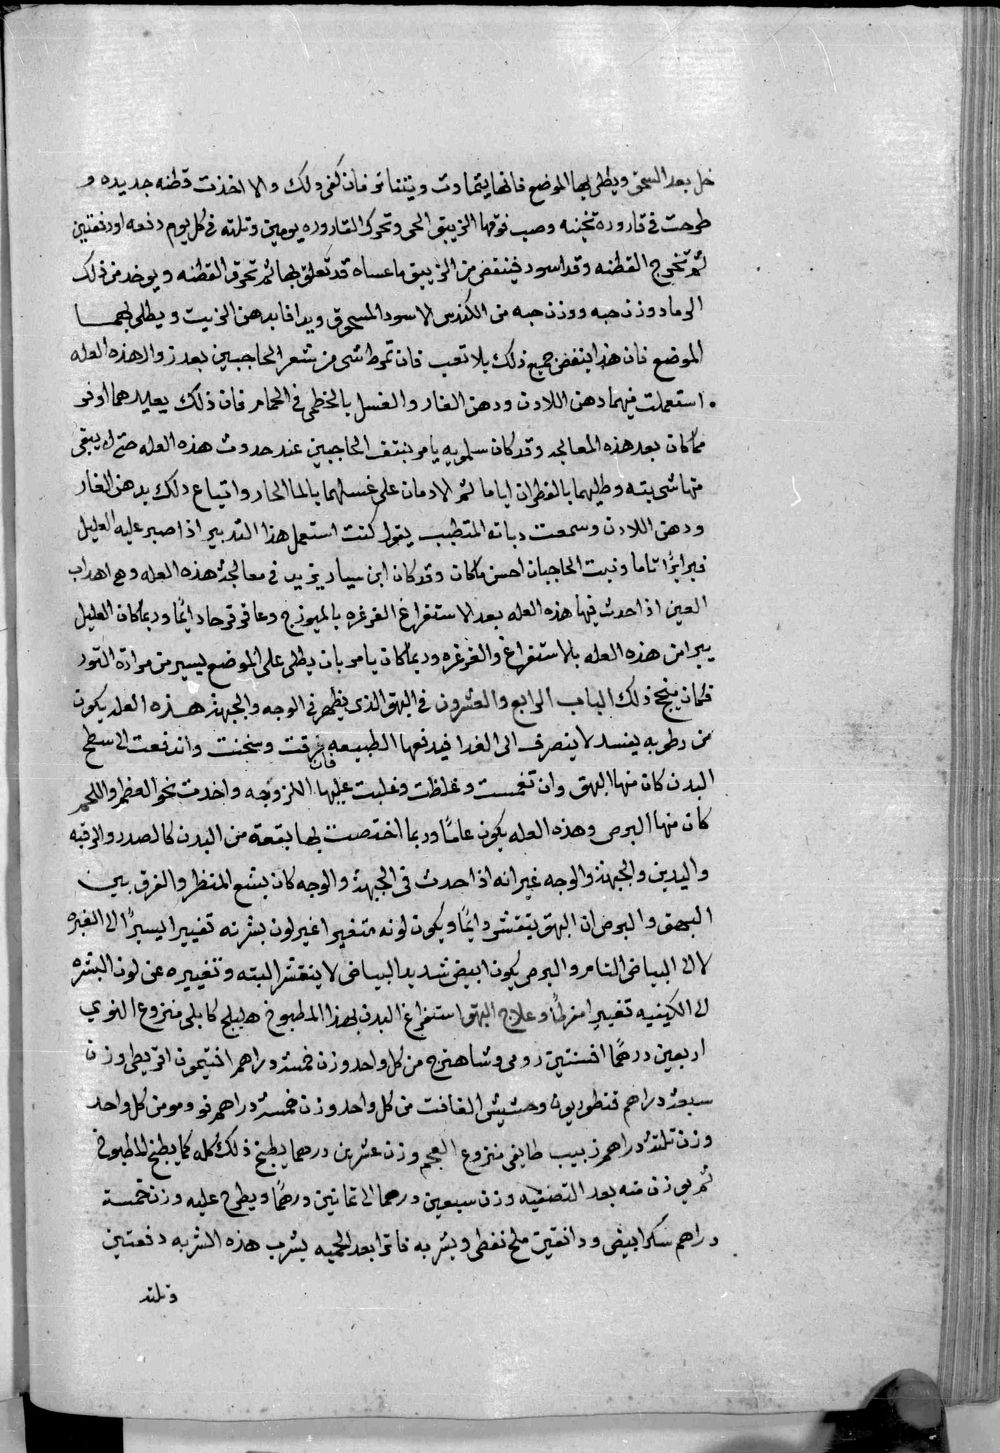 خل بعد السحق ويطلى بها الموضع فانها يتماوت ويتناثر فان كفى ذلك والا اخذت قطنه جديده و
طرحت فى قاروره تخينه وصب فوقها الزيبق الحى وتحرك القاروره يومين وثلثه فى كل يوم دفعه او دفعتين
ثم تخرج القطنه وقد اسود فينفض من الزيبق ما عساه قد تعلق بها ثم تحرق القطنه ويوخد من ذلك
الرماد وزن حبه ووزن حبه من الكندس الاسود المسحوق ويدافا بدهن الزيت ويطلى بهما
الموضع فان هذا ينفض جميع ذلك بلا تعب فان تمرط شى من شعر الحاجبين بعد زوال هذه العله
استعملت فيهما دهن اللادن ودهن الغار والغسل بالخطمى فى الحمام فان ذلك يعيدهما اوفر
مما كان بعد هذه المعالجه وقد كان سلمويه يامر بنتف الحاجبين عند حدوث هذه العله حتى لا يبقى
منها شى بته وطليهما بالقطران اياما ثم الادمان على غسلهما بالما الحار واتباع ذلك بدهن الغار
ودهن اللادن وسمعت دبانه المتطبب يقول كنت استعمل هذا التدبير اذا صبر عليه العليل
فيبرا برًا تاما ونبت الحاجبان احسن ما كان وقد كان ابن سيار يزيد فى معالجة هذه العله وهى اهداب
العين اذا حدث فيها هذه العله بعد الاستفراغ الغرغره بالميوزج وعاقرقرحا دايمًا وربما كان العليل
يبرا من هذه العله بالاستفراغ والغرغره وربما كان يامر بان يطلى على الموضع يسير من مرارة الثور
فكان ينجح ذلك الباب الرابع والعشرون فى البهق الذى يظهر فى الوجه والجبهة هذه العله يكون
من رطوبه يفسد لا ينصرف الى الغدا فيدفعها الطبيعه فان رقت وسخنت واندفعت الى سطح
البدن كان منها البهق وان تغمست وغلظت وغلبت عليها اللزوجه واخدت نحو العظم واللحم
كان منها البرص وهذه العله يكون عامًا وربما اختصت بها بقعة من البدن كالصدر والرقبه
واليدين والجبهة والوجه غير انه اذا حدث فى الجبهة والوجه كان بشع المنظر والفرق بين
البهق والبرص ان البهق يتقشر دايمًا ويكون لونه متغيرا غير لون بشرته تغييرا يسيرًا الى الغبره
لا الى البياض التام والبرص يكون ابيض شديد البياض لا ينقشر البته وتغييره عن لون البشره
الى الكيفيه تغييرا مفرطًا وعلاج البهق استفراغ البدن بهذا المطبوخ هليلج كابلى منزوع النوى
اربعين درهمًا افسنتين رومى وشاهترج من كل واحد وزن خمسة دراهم افتيمون اقريطى وزن
سبعة دراهم قنطوريون وحشيش الغافت من كل واحد وزن خمسة دراهم فوومو من كل واحد
وزن ثلثة دراهم زبيب طايفى منزوع العجم وزن عشرين درهما يطبخ ذلك كله كما يطبخ المطبوخ
ثم يوزن منه بعد التصفيه وزن سبعين درهما الى ثمانين درهمًا ويطرح عليه وزن خمسة
دراهم سكر ابيض ودانقين ملح نفطى ويشربه فاترا بعد الحميه يشرب هذه الشربه دفعتين
وثلثه